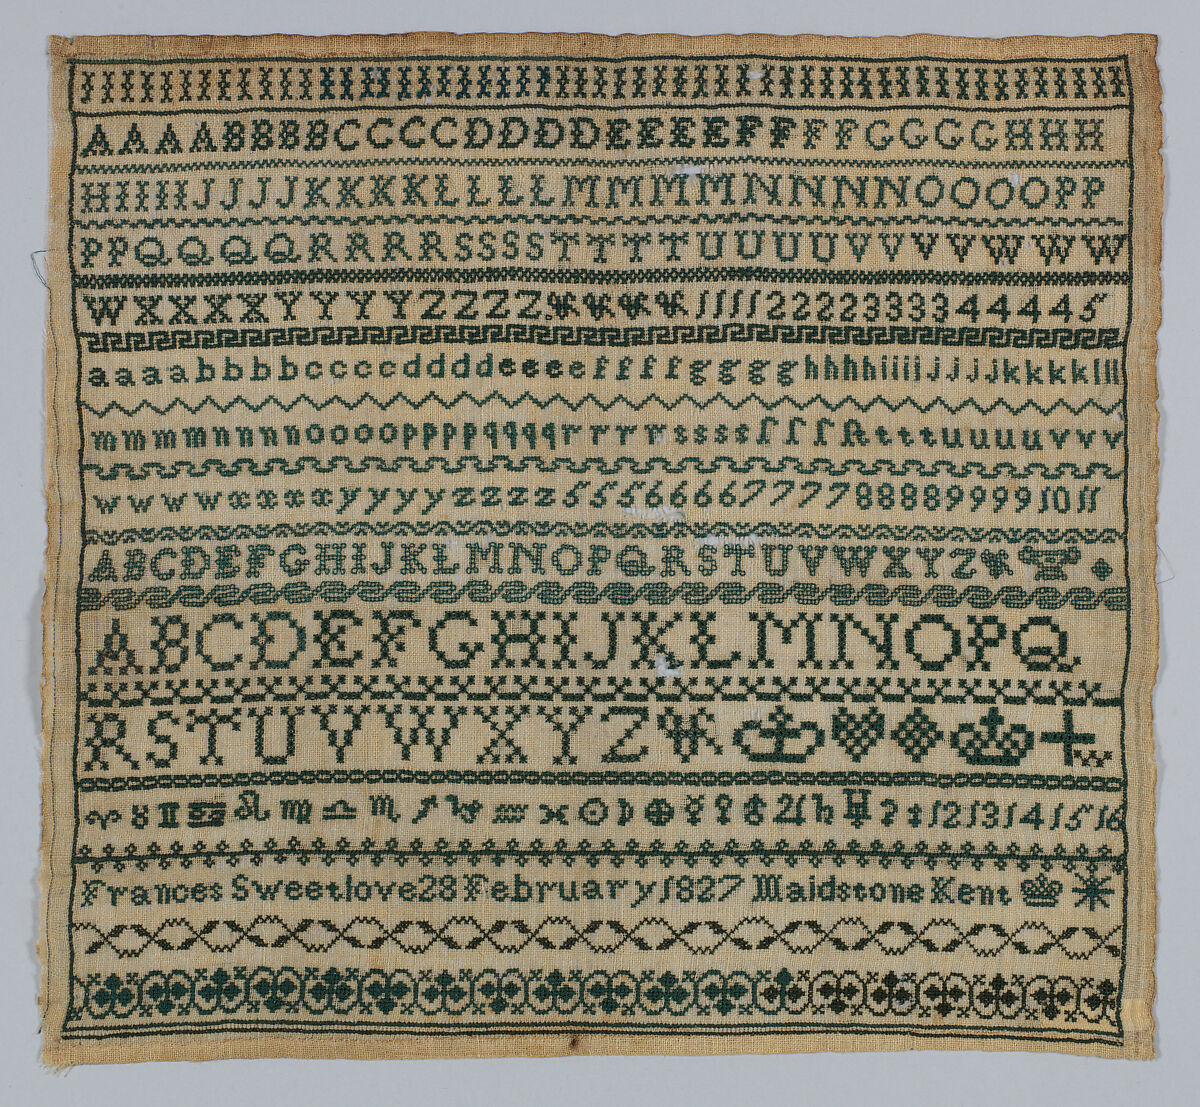 AAAABBBBCCCCDDDDEEEEFFFFGGGGHHH
HIIIIJJJJKKKKLLLLMMMMNNNNOOOOPP
PPQQQQRRRRSSSSTTTTUUUUVVVVWWW
WXXXXYYYYZZZZ&&&&11112222333344445
aaaabbbbccccddddeeeeffffgggghhhhiiiijjjjkkkklll
mmmmnnnnooooppppqqqqrrrrssssſſſſttttuuuuvvv
wwwwxxxxyyyyzzzz55566667777888899991011
ABCDEFGHIJKLMNOPQRSTUVWXYZ&
ABCDEFGHIJKLMNOPQ
RSTUVWXYZ& W
♈♉♊♋♌♍♎♏♐♑♒♓☉☽⊕☿♀ ♃♄♅ 1213141516
Frances Sweetlove 28 February 1827 Maidstone Kent